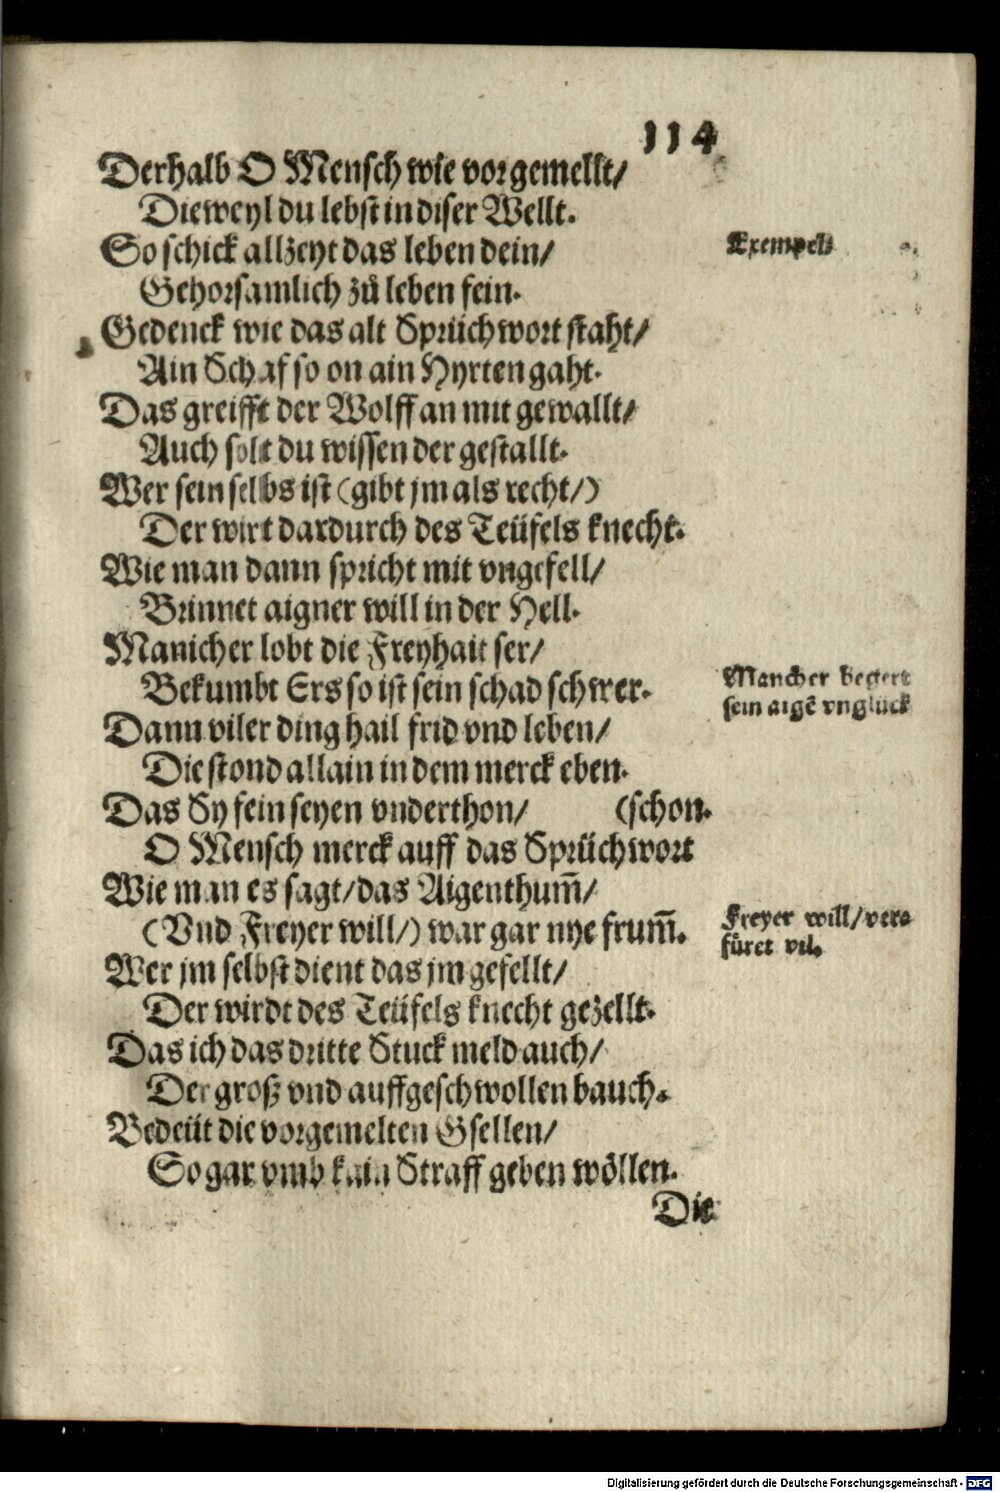 114
Derhalb O Mensch wie vorgemellt/
Dieweyl du lebst in diser Wellt.
So schick allzeyt das leben dein/
Exempels
Gehorsamlich zů leben fein.
Gedenck wie das alt Sprüchwort staht/
Ain Schaf so on ain Hyrten gaht.
Das greifft der Wolff an mit gewallt/
Auch solt du wissen der gestallt.
Wer sein selbs ist (gibt jm als recht/)
Der wirt dardurch des Teüfels knecht.
Wie man dann spricht mit vngefell/
Brinnet aigner will in der Hell.
Manicher lobt die Freyhait ser/
Bekumbt Ers so ist sein schad schwer.
Mancher begert
sein aigē vnglück
Dann viler ding hail frid vnd leben/
Die stond allain in dem merck eben.
Das Sy fein seyen vnderthon/ (schon.
O Mensch merck auff das Sprüchwort
Wie man es sagt/das Aigenthum̄/
(Vnd Freyer will/) war gar nye frum̄.
Freyer will/ver=
füret vil.
Wer jm selbst dient das jm gefellt/
Der wirdt des Teüfels knecht gezellt.
Das ich das dritte Stuck meld auch/
Der groß vnd auffgeschwollen bauch.
Bedeüt die vorgemelten Gsellen/
So gar vmb kain Straff geben wöllen.
Die
Digitalisierung gefördert durch die Deutsche Forschungsgemeinschaft - DFG